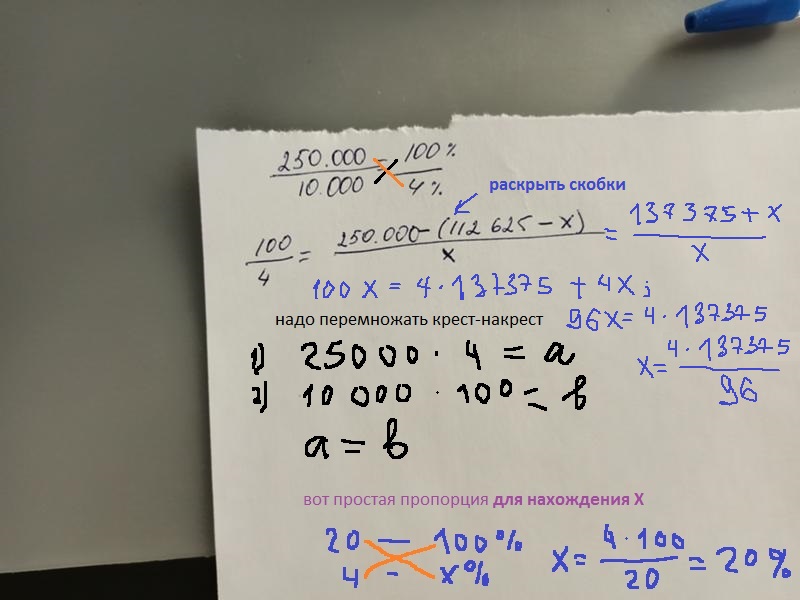 250.000 = 100%
10.000 4%
раскрыть скобки
100/4 = 250.000 - (112 625 - x) / x = 137375 + x / x
100 x = 4 · 137375 + 4x;
надо перемножать крест-накрест
96x = 4 · 137375
1) 25000 · 4 = a
x = 4 · 137375 / 96
2) 10 000 · 100 = b
a = b
вот простая пропорция для нахождения X
20 — 100%
4 - x%
x = 4 · 100 / 20 = 20%